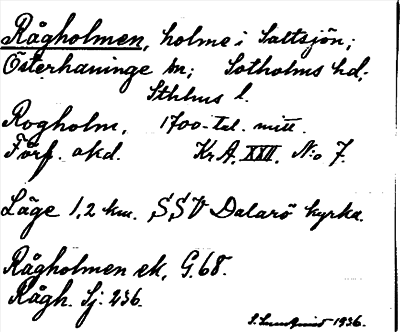 Rågholmen, holme i Saltsjön;
Österhaninge sn; Sotholms hd;
Sthlms l.
Rogholm, 1700-tal. mitt.
Förf. okd. Kr A, XXII, No 7.
Läge 1,2 km. SSV Dalarö kyrka.
Rågholmen ek, G. 68.
Rågh. Sj: 236.
1936.